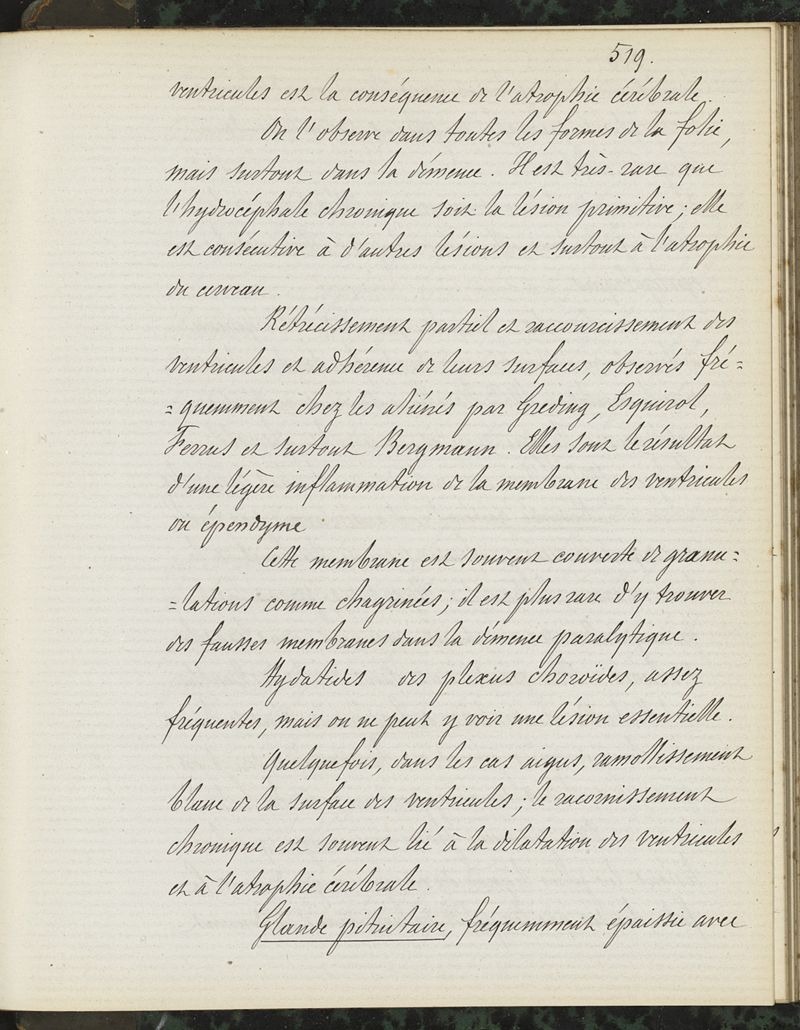 519.
ventricules est la conséquence de l'atrophie cérébrale.
On l'observe dans toutes les formes de la folie,
mais surtout dans la démence. Il est très-rare que
l'hydrocéphale chronique soit la lésion primitive; elle
est consécutive à d'autres lésions et surtout à l'atrophie
du cerveau.
Rétrécissement partiel et raccourcissement des
ventricules et adhérence de leurs surfaces, observés fré=
=quemment chez les aliénés par Greding, Esquirol,
Ferrus et surtout Bergmann. Elles sont le résultat
d'une légère inflammation de la membrane des ventricules
ou épendyme
Cette membrane est souvent couverte de granu=
=lations comme chagrinées; il est plus rare d'y trouver
des fausses membranes dans la démence paralytique.
Hydatides des plexus choroïdes, assez
fréquentes, mais on ne peut y voir une lésion essentielle.
Quelquefois, dans les cas aigus, ramollissement
blanc de la surface des ventricules; le racornissement
chronique est souvent lié à la dilatation des ventricules
et à l'atrophie cérébrale.
Glande pituitaire, fréquemment épaissie avec